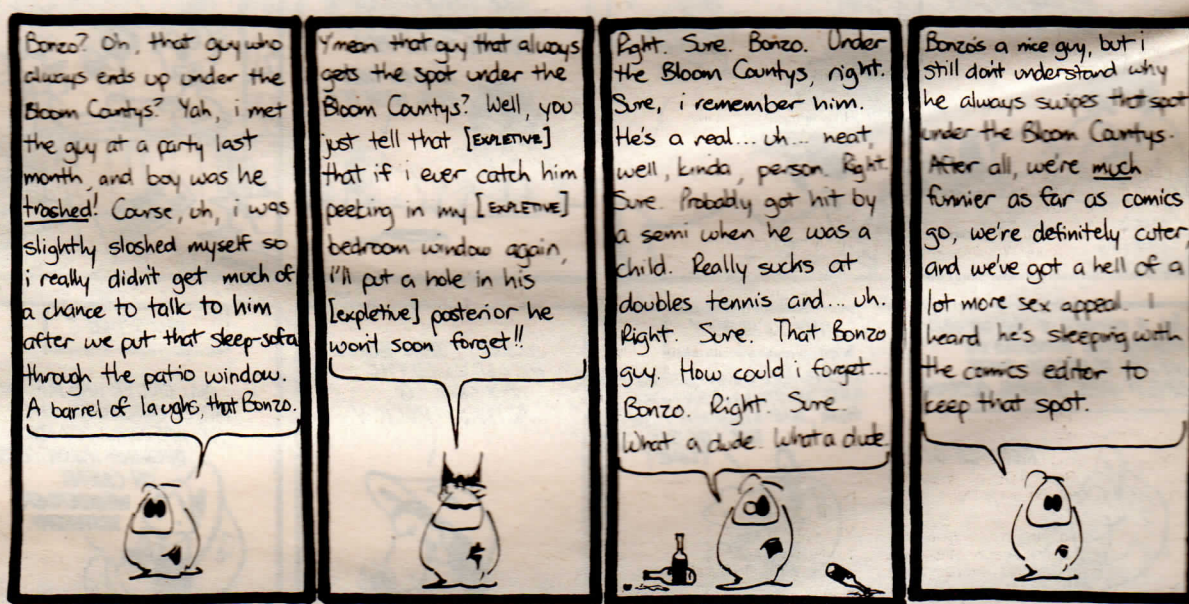 Bonzo? Oh, that guy who
always ends up under the
Bloom Countys? Yah, i met
the guy at a party last
month, and boy was he
trashed! Course, uh, i was
slightly sloshed myself so
i really didn't get much of
a chance to talk to him
after we put that sleep-sofa
through the patio window.
A barrel of laughs, that Bonzo.
Y'mean that guy that always
gets the spot under the
Bloom Countys? Well, you
just tell that [EXPLETIVE]
that if i ever catch him
peeking in my [EXPLETIVE]
bedroom window again,
i'll put a hole in his
[expletive] posterior he
won't soon forget!!
Right. Sure. Bonzo. Under
the Bloom Countys, right.
Sure, i remember him.
He's a real... uh... neat,
well, kinda, person. Right.
Sure. Probably got hit by
a semi when he was a
child. Really sucks at
doubles tennis and... uh.
Right. Sure. That Bonzo
guy. How could i forget...
Bonzo. Right. Sure.
What a dude. What a dude.
Bonzo's a nice guy, but i
still don't understand why
he always swipes that spot
under the Bloom Countys.
After all, we're much
funnier as far as comics
go, we're definitely cuter,
and we've got a hell of a
lot more sex appeal. i
heard he's sleeping with
the comics editor to
keep that spot.